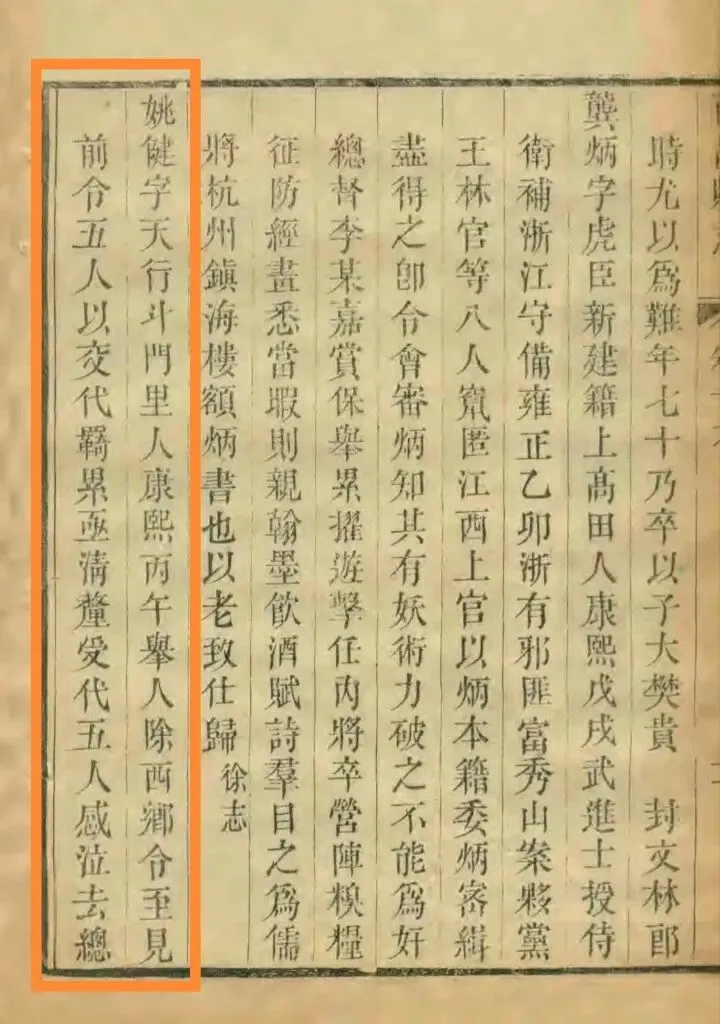 時尤以爲難年七十乃卒以子大樊貴　封文林郎
龔炳字虎臣新建籍上高田人康熙戊戌武進士授侍
衛補浙江守備雍正乙卯浙有邪匪富秀山案夥黨
王林官等八人竄匿江西上官以炳本籍委炳密緝
盡得之卽令會審炳知其有妖術力破之不能爲奸
總督李某嘉賞保舉累擢遊擊任內將卒營陣糗糧
征防經畫悉當暇則親翰墨飲酒賦詩羣目之爲儒
將杭州鎮海樓額炳書也以老致仕歸徐志
姚健字天行斗門里人康熙丙午舉人除西鄉令至見
前令五人以交代羇累亟淸釐受代五人感泣去總